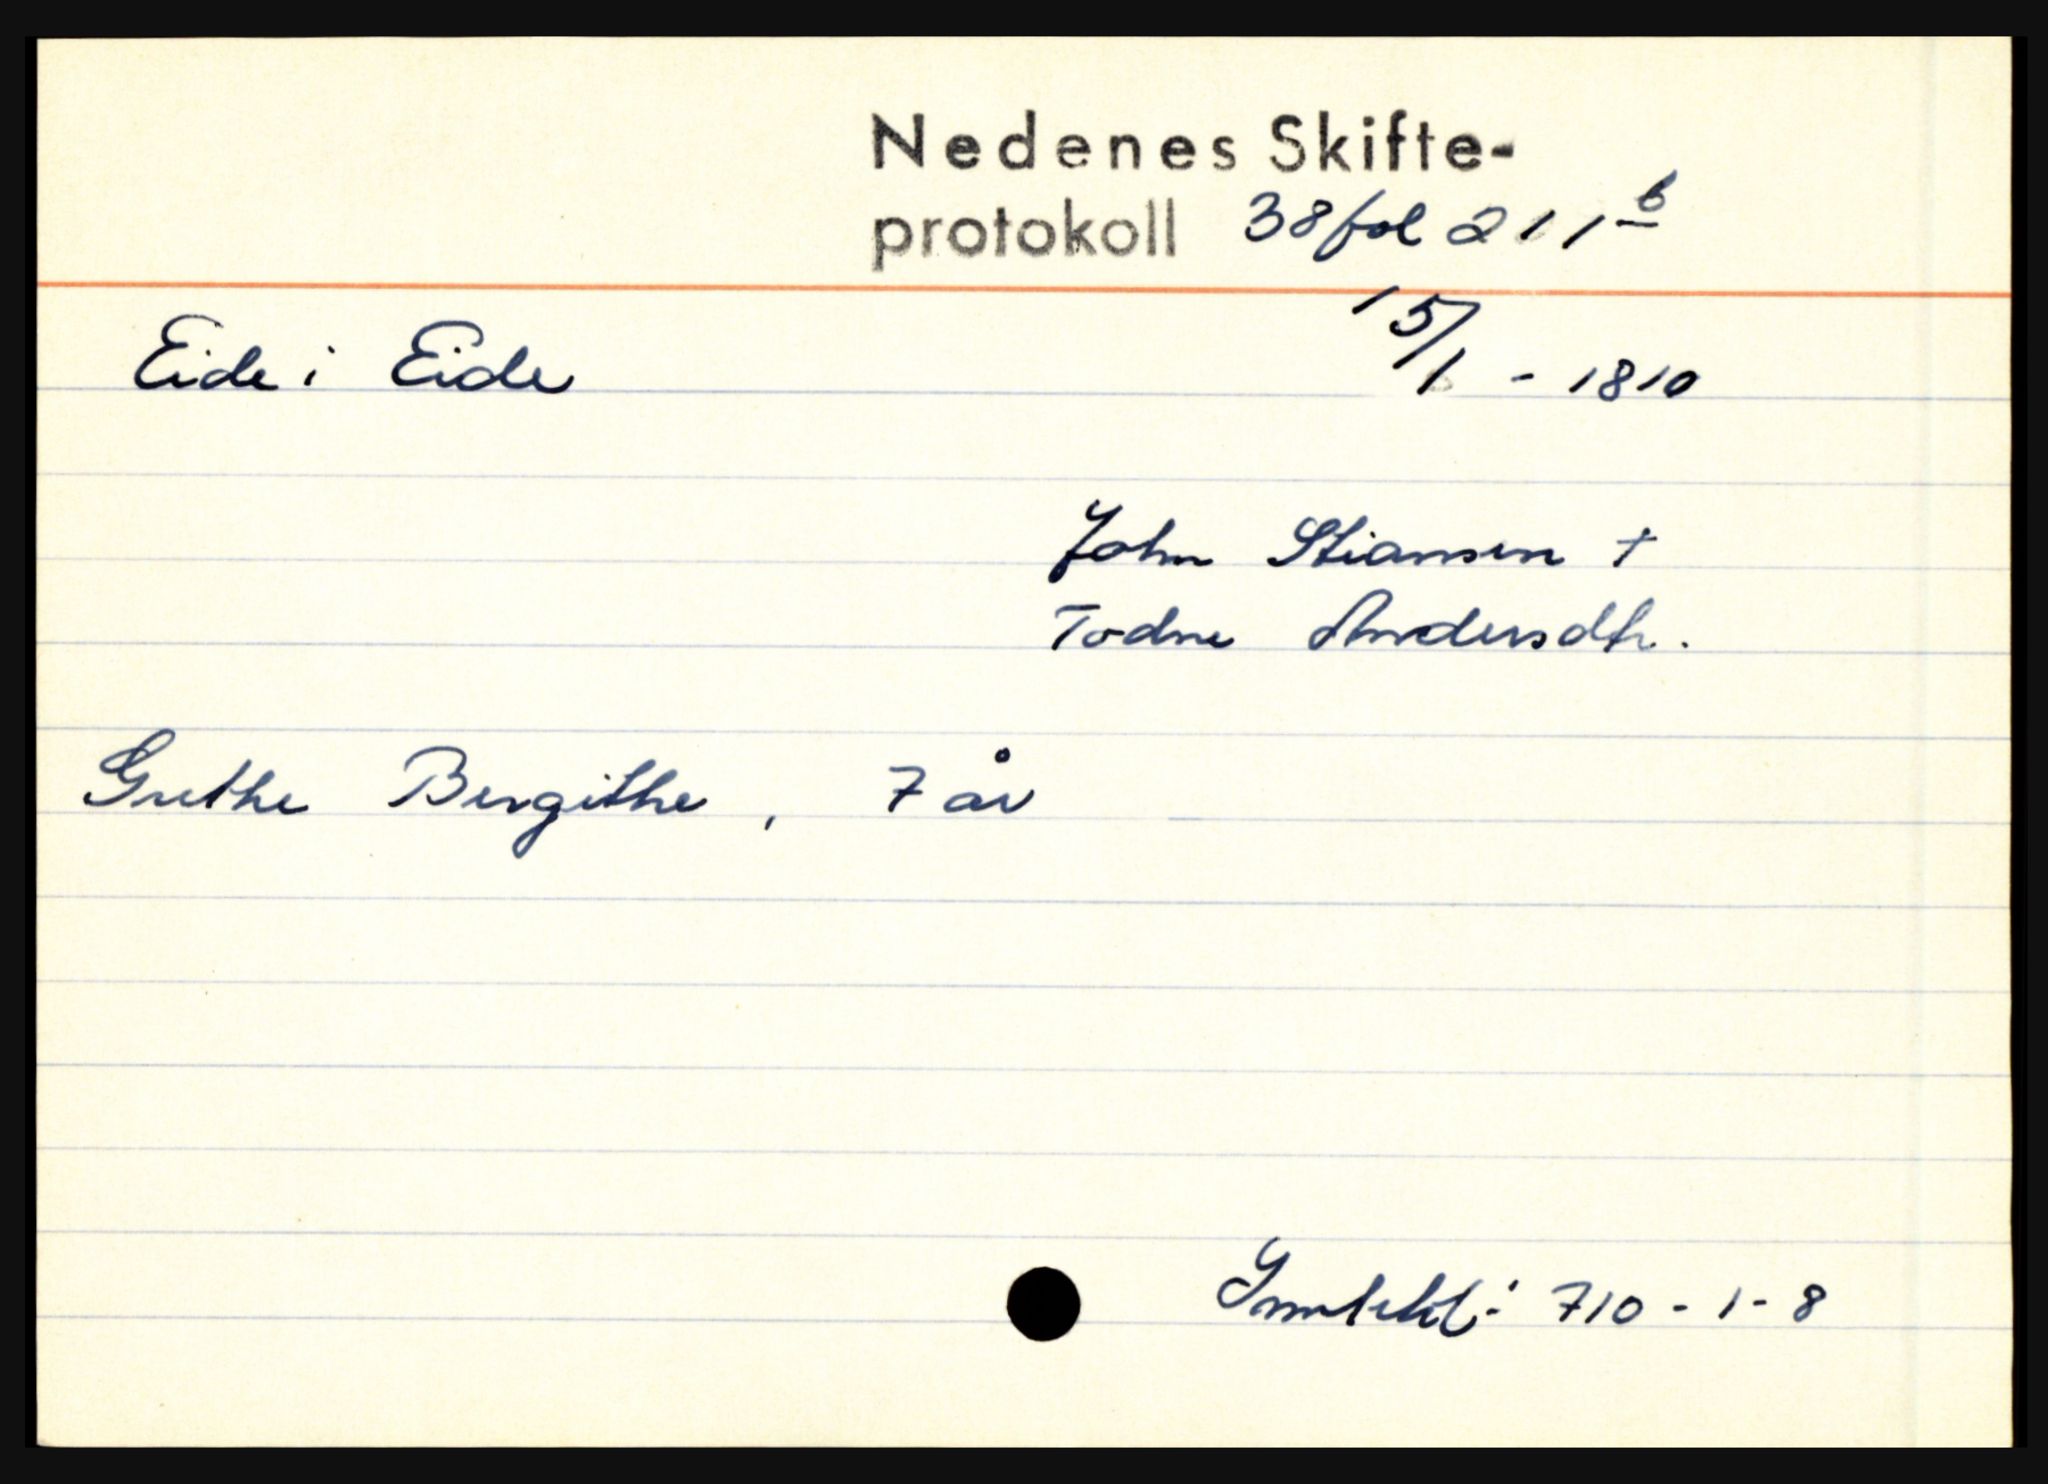 Nedenes Skifte-
protokoll 38 fol 211 b
Eide i Eide 15/1 - 1810
John Stiansen †
Todne Andersdtr.
Grethe Bergithe, 7 år
Inntekt: 710 - 1 - 8